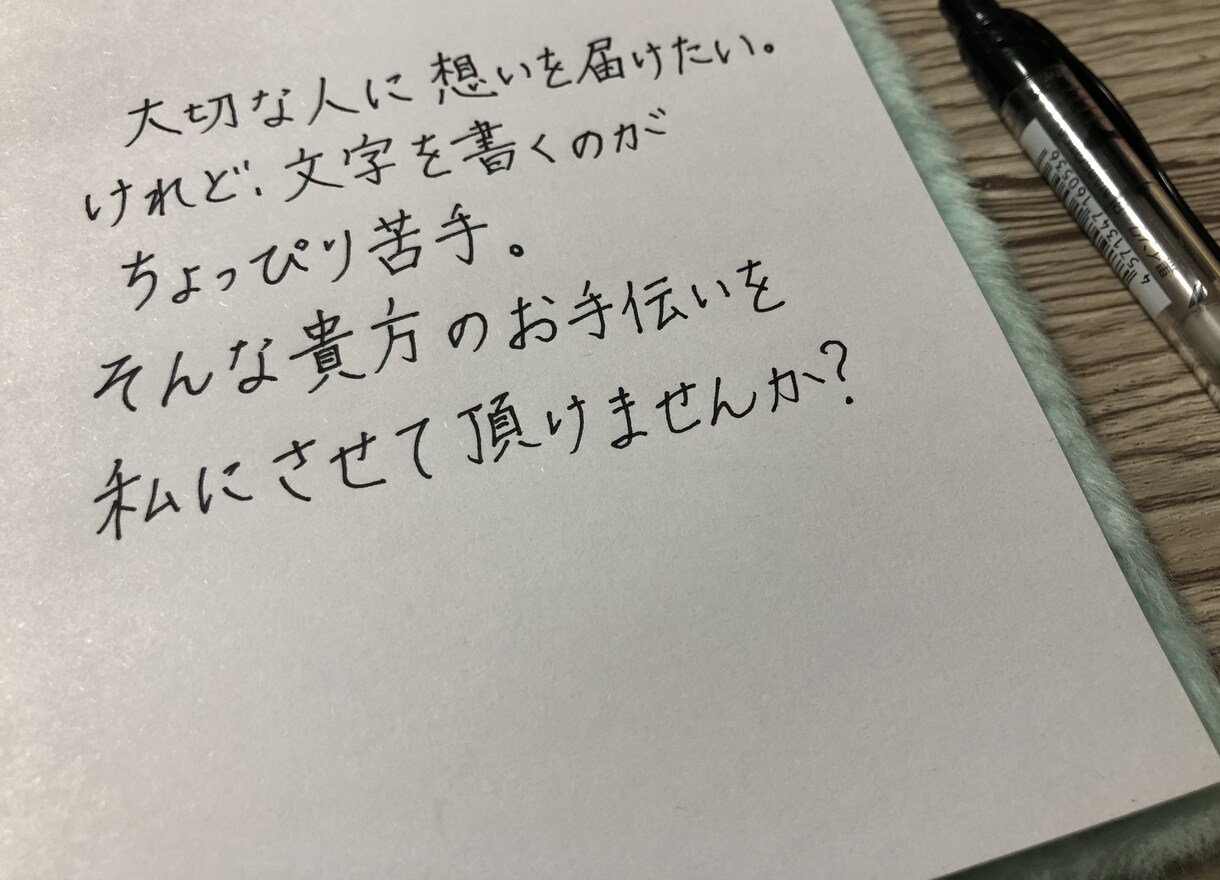 大切な人に想いを届けたい。
けれど、文字を書くのが
ちょっぴり苦手。
そんな貴方のお手伝いを
私にさせて頂けませんか?
4 571347 160536